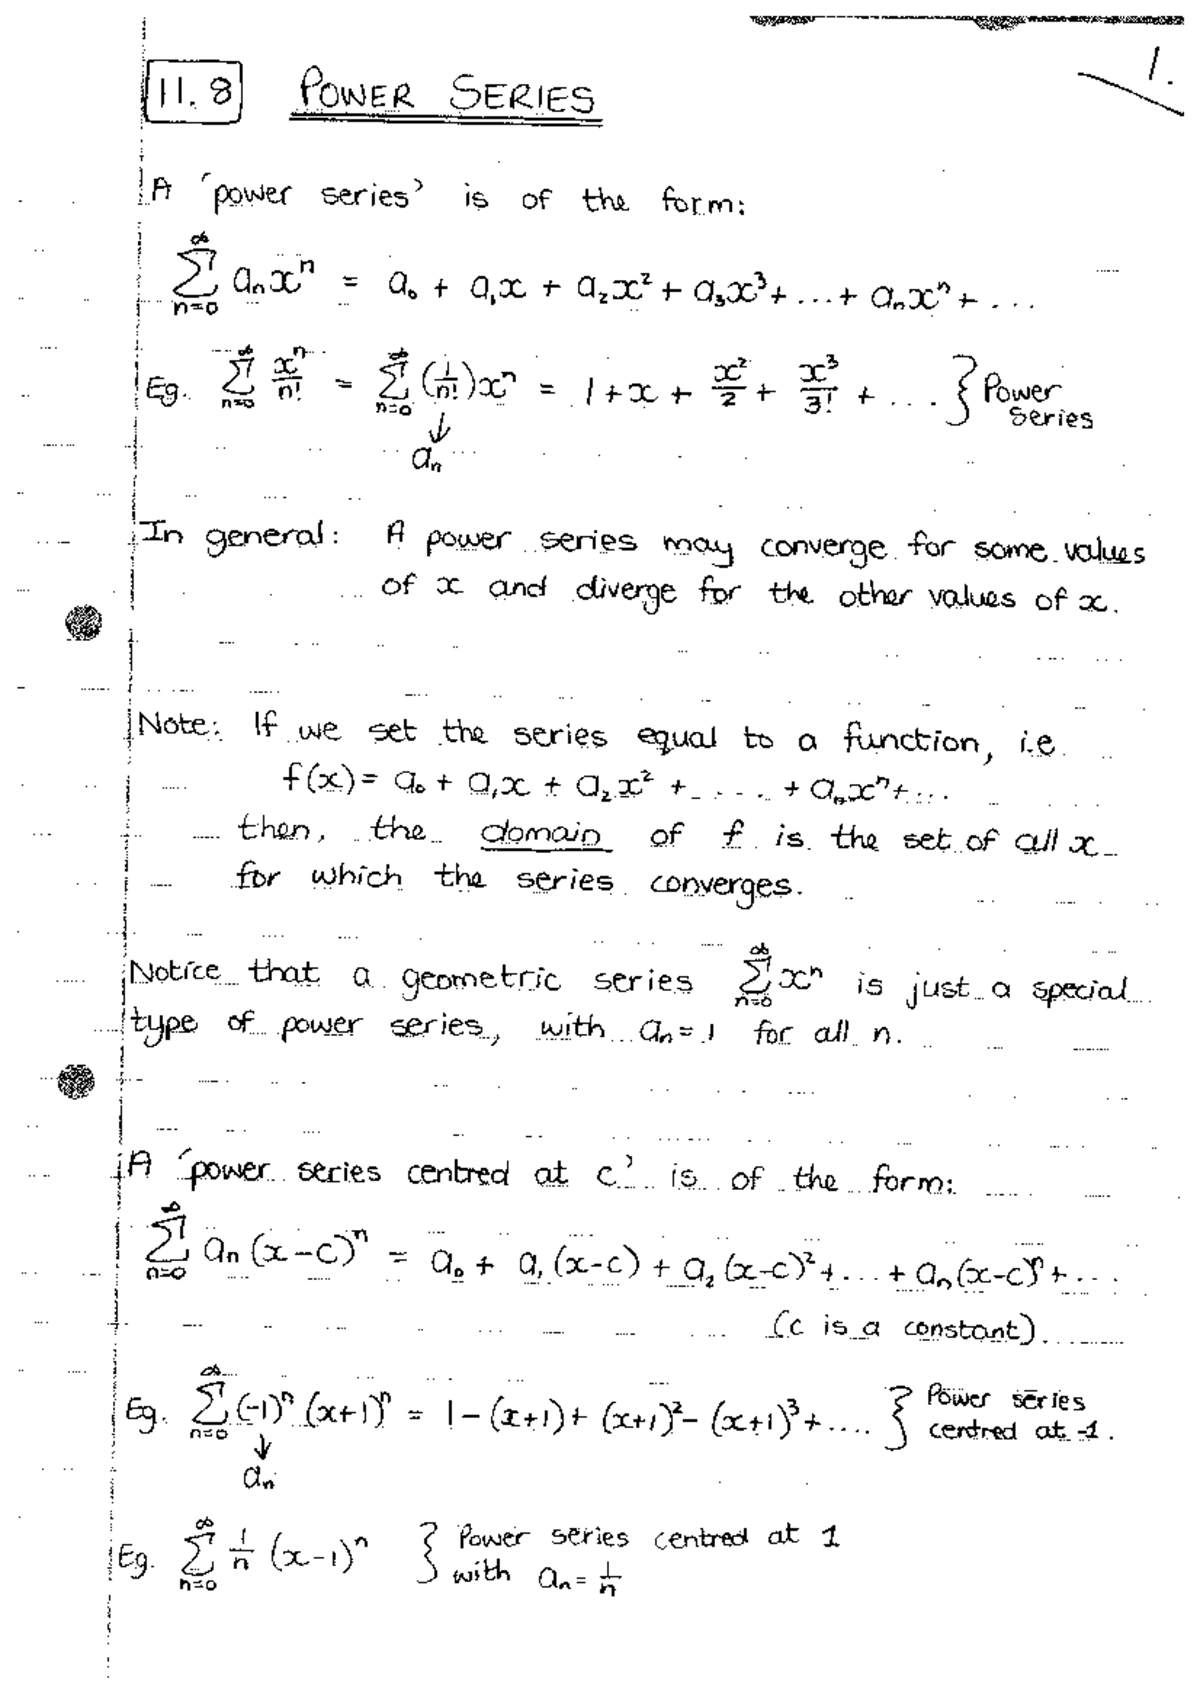 1.
11.8 POWER SERIES
A 'power series' is of the form:
∑_{n=0}^{∞} aₙxⁿ = a₀ + a₁x + a₂x² + a₃x³ + ... + aₙxⁿ + ...
Eg. ∑_{n=0}^{∞} xⁿ/n! = ∑_{n=0}^{∞} (1/n!)xⁿ = 1 + x + x²/2 + x³/3! + ... } Power series
↓
aₙ
In general: A power series may converge for some values
of x and diverge for the other values of x.
Note: If we set the series equal to a function, i.e.
f(x) = a₀ + a₁x + a₂x² + .... + aₙxⁿ + ...
then, the domain of f is the set of all x
for which the series converges.
Notice that a geometric series ∑_{n=0}^{∞} xⁿ is just a special
type of power series, with aₙ = 1 for all n.
A 'power series centred at c' is of the form:
∑_{n=0}^{∞} aₙ(x-c)ⁿ = a₀ + a₁(x-c) + a₂(x-c)² + ... + aₙ(x-c)ⁿ + ...
(c is a constant).
Eg. ∑_{n=0}^{∞} (-1)ⁿ(x+1)ⁿ = 1 - (x+1) + (x+1)² - (x+1)³ + .... } Power series centred at -1.
↓
aₙ
Eg. ∑_{n=0}^{∞} 1/n (x-1)ⁿ } Power series centred at 1
with aₙ = 1/n